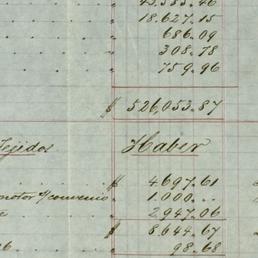 43.583.46
18.627.15
686.09
308.78
759.96
$ 526,053.87
Tejidos Haber
$ 4697.61
motor s/convenio 1.000...
2947.06
$ 8.644.67
98.68